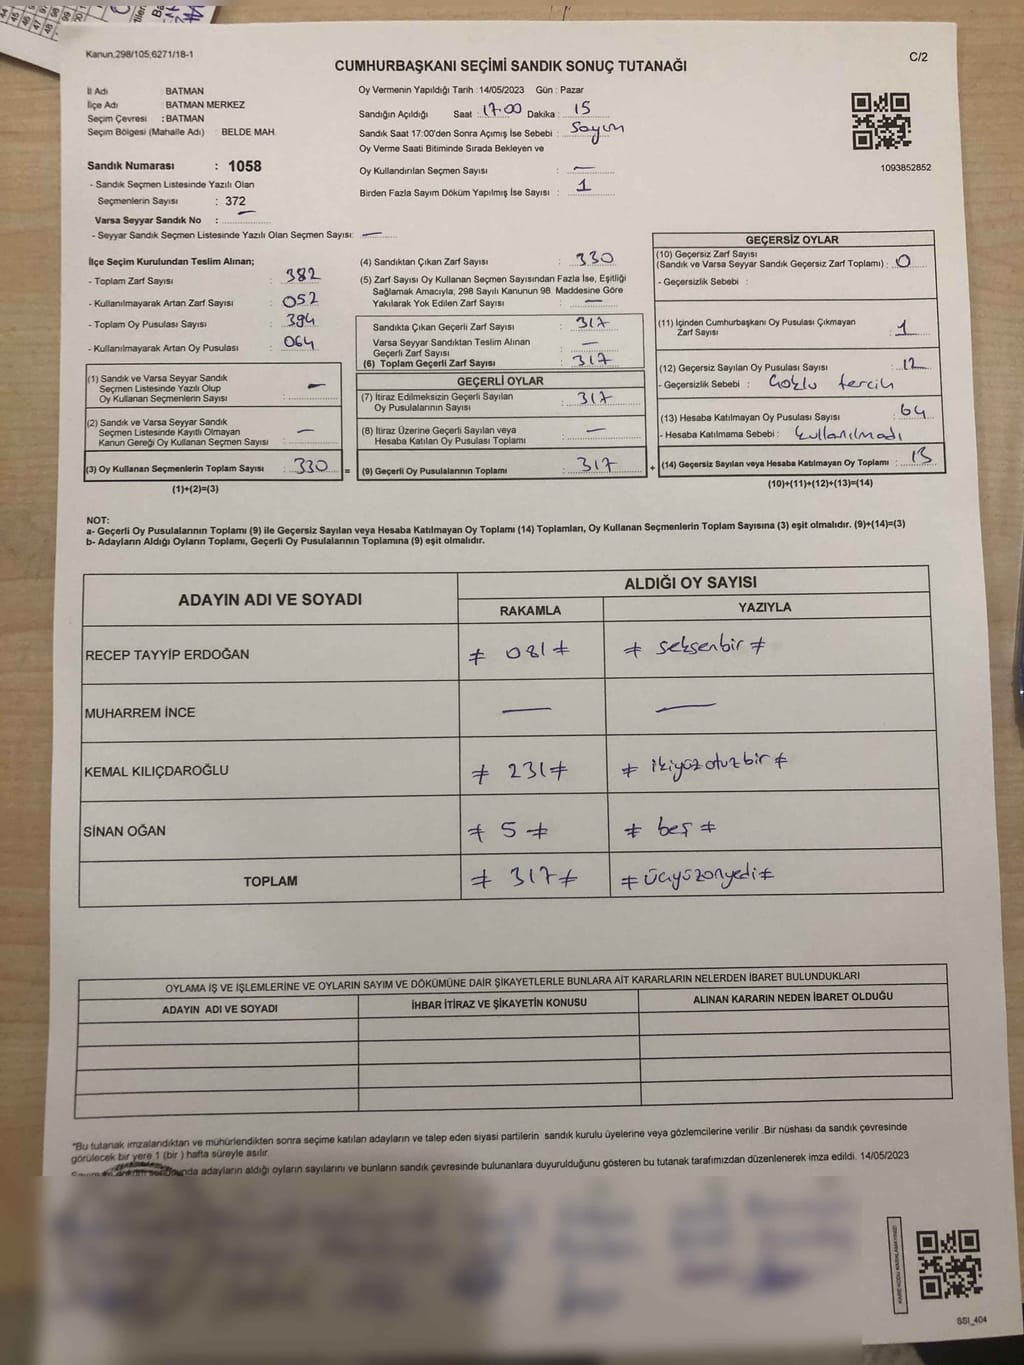 Kanun.298/105,6271/18-1
C/2
CUMHURBAŞKANI SEÇİMİ SANDIK SONUÇ TUTANAĞI
İl Adı : BATMAN
İlçe Adı : BATMAN MERKEZ
Seçim Çevresi : BATMAN
Seçim Bölgesi (Mahalle Adı) : BELDE MAH.
Sandık Numarası : 1058
- Sandık Seçmen Listesinde Yazılı Olan
Seçmenlerin Sayısı : 372
Varsa Seyyar Sandık No : —
- Seyyar Sandık Seçmen Listesinde Yazılı Olan Seçmen Sayısı: —
Oy Vermenin Yapıldığı Tarih : 14/05/2023 Gün : Pazar
Sandığın Açıldığı Saat : 17:00 Dakika : 15
Sandık Saat 17:00'den Sonra Açımış İse Sebebi : Sayım
Oy Verme Saati Bitiminde Sırada Bekleyen ve
Oy Kullandırılan Seçmen Sayısı : —
Birden Fazla Sayım Döküm Yapılmış İse Sayısı : 1
1093852852
İlçe Seçim Kurulundan Teslim Alınan;
- Toplam Zarf Sayısı : 382
- Kullanılmayarak Artan Zarf Sayısı : 052
- Toplam Oy Pusulası Sayısı : 394
- Kullanılmayarak Artan Oy Pusulası : 064
(1) Sandık ve Varsa Seyyar Sandık
Seçmen Listesinde Yazılı Olup
Oy Kullanan Seçmenlerin Sayısı : —
(2) Sandık ve Varsa Seyyar Sandık
Seçmen Listesinde Kayıtlı Olmayan
Kanun Gereği Oy Kullanan Seçmen Sayısı : —
(3) Oy Kullanan Seçmenlerin Toplam Sayısı : 330 =
(1)+(2)=(3)
(4) Sandıktan Çıkan Zarf Sayısı : 330
(5) Zarf Sayısı Oy Kullanan Seçmen Sayısından Fazla İse, Eşitliği
Sağlamak Amacıyla, 298 Sayılı Kanunun 98. Maddesine Göre
Yakılarak Yok Edilen Zarf Sayısı : —
Sandıkta Çıkan Geçerli Zarf Sayısı : 317
Varsa Seyyar Sandıktan Teslim Alınan
Geçerli Zarf Sayısı : —
(6) Toplam Geçerli Zarf Sayısı : 317
GEÇERLİ OYLAR
(7) İtiraz Edilmeksizin Geçerli Sayılan
Oy Pusulalarının Sayısı : 317
(8) İtiraz Üzerine Geçerli Sayılan veya
Hesaba Katılan Oy Pusulası Toplamı : —
(9) Geçerli Oy Pusulalarının Toplamı : 317 +
GEÇERSİZ OYLAR
(10) Geçersiz Zarf Sayısı
(Sandık ve Varsa Seyyar Sandık Geçersiz Zarf Toplamı) : 0
- Geçersizlik Sebebi :
(11) İçinden Cumhurbaşkanı Oy Pusulası Çıkmayan
Zarf Sayısı : 1
(12) Geçersiz Sayılan Oy Pusulası Sayısı : 12
- Geçersizlik Sebebi : Çoklu tercih
(13) Hesaba Katılmayan Oy Pusulası Sayısı : 64
- Hesaba Katılmama Sebebi : kullanılmadı
(14) Geçersiz Sayılan veya Hesaba Katılmayan Oy Toplamı : 13
(10)+(11)+(12)+(13)=(14)
NOT:
a- Geçerli Oy Pusulalarının Toplamı (9) ile Geçersiz Sayılan veya Hesaba Katılmayan Oy Toplamı (14) Toplamları, Oy Kullanan Seçmenlerin Toplam Sayısına (3) eşit olmalıdır. (9)+(14)=(3)
b- Adayların Aldığı Oyların Toplamı, Geçerli Oy Pusulalarının Toplamına (9) eşit olmalıdır.
ADAYIN ADI VE SOYADI
ALDIĞI OY SAYISI
RAKAMLA YAZIYLA
RECEP TAYYİP ERDOĞAN ≠ 081 ≠ ≠ seksenbir ≠
MUHARREM İNCE — —
KEMAL KILIÇDAROĞLU ≠ 231 ≠ ≠ ikiyüzotuzbir ≠
SİNAN OĞAN ≠ 5 ≠ ≠ beş ≠
TOPLAM ≠ 317 ≠ ≠ üçyüzonyedi ≠
OYLAMA İŞ VE İŞLEMLERİNE VE OYLARIN SAYIM VE DÖKÜMÜNE DAİR ŞİKAYETLERLE BUNLARA AİT KARARLARIN NELERDEN İBARET BULUNDUKLARI
ADAYIN ADI VE SOYADI İHBAR İTİRAZ VE ŞİKAYETİN KONUSU ALINAN KARARIN NEDEN İBARET OLDUĞU
*Bu tutanak imzalandıktan ve mühürlendikten sonra seçime katılan adayların ve talep eden siyasi partilerin sandık kurulu üyelerine veya gözlemcilerine verilir .Bir nüshası da sandık çevresinde
görülecek bir yere 1 (bir ) hafta süreyle asılır.
adayların aldığı oyların sayılarını ve bunların sandık çevresinde bulunanlara duyurulduğunu gösteren bu tutanak tarafımızdan düzenlenerek imza edildi. 14/05/2023
SSI_404